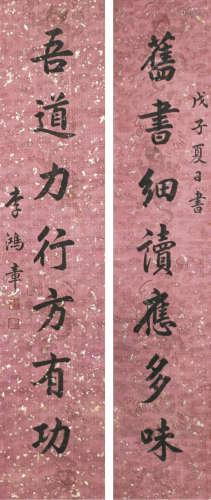 戊子夏日書
舊書細讀應多味
吾道力行方有功
李鴻章